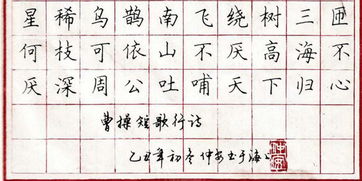 星稀乌鹊南飞绕树三匝
何枝可依山不厌高海不
厌深周公吐哺天下归心
曹操短歌行诗
乙丑年初冬仲安书于海